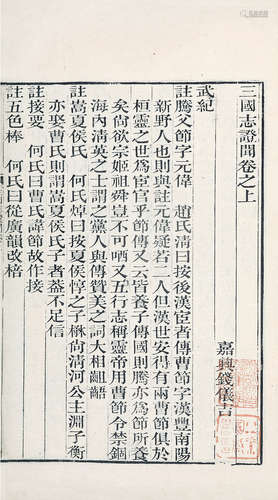 三國志證聞卷之上
嘉興錢儀吉
武紀
註騰父節字元偉　趙氏清曰按後漢宦者傳曹節字漢豐南陽
新野人也則與註元偉疑者二人但漢世安得有兩曹節俱於
桓靈之世為宦官乎節傳又云皆養子傳國則騰亦為節所養
矣尚欲宗姬祖舜豈不可哂又五行志稱靈帝用曹節令禁錮
海內清英之士謂之黨人與傳贊美之詞大相齟齬
註嵩夏侯氏　何氏焯曰按夏侯惇之子楙尚清河公主淵子衡
亦娶曹氏則謂嵩夏侯氏子者葢不足信
註接要　何氏曰曹氏諱節故作接
註五色棒　何氏曰從廣韻改棓